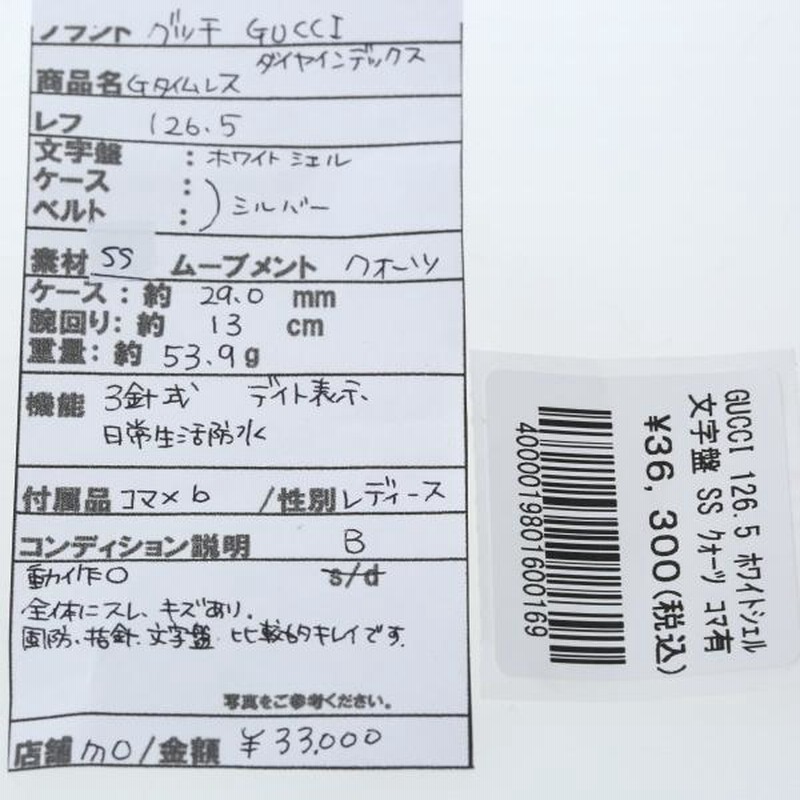 ブランド グッチ GUCCI
ダイヤインデックス
商品名 Gタイムレス
レフ 126.5
文字盤 : ホワイトシェル
ケース :
ベルト : ) シルバー
素材 SS ムーブメント クオーツ
ケース : 約 29.0 mm
腕回り: 約 13 cm
重量: 約 53.9 g
機能 3針式 デイト表示
日常生活防水
付属品 コマ×6 /性別 レディース
コンディション説明 B
動作○ s/d
全体にスレ、キズあり。
風防・指針・文字盤 比較的キレイです。
写真をご参考ください。
店舗 mo /金額 ¥33,000
GUCCI 126.5 ホワイトシェル
文字盤 SS クォーツ コマ有
¥36,300(税込)
4000019801600169